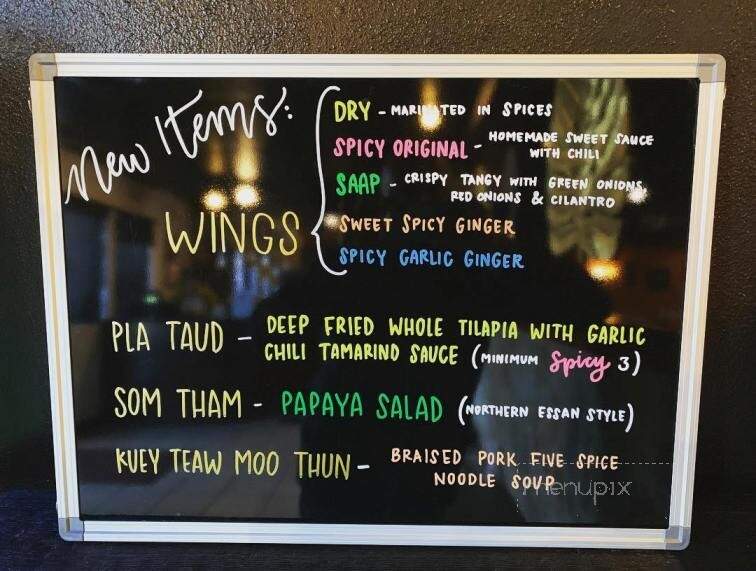 New Items:
WINGS
DRY - MARINATED IN SPICES
SPICY ORIGINAL - HOMEMADE SWEET SAUCE
WITH CHILI
SAAP - CRISPY TANGY WITH GREEN ONIONS,
RED ONIONS & CILANTRO
SWEET SPICY GINGER
SPICY GARLIC GINGER
PLA TAUD - DEEP FRIED WHOLE TILAPIA WITH GARLIC
CHILI TAMARIND SAUCE (MINIMUM Spicy 3)
SOM THAM - PAPAYA SALAD (NORTHERN ESSAN STYLE)
KUEY TEAW MOO THUN - BRAISED PORK FIVE SPICE
NOODLE SOUP
menupix